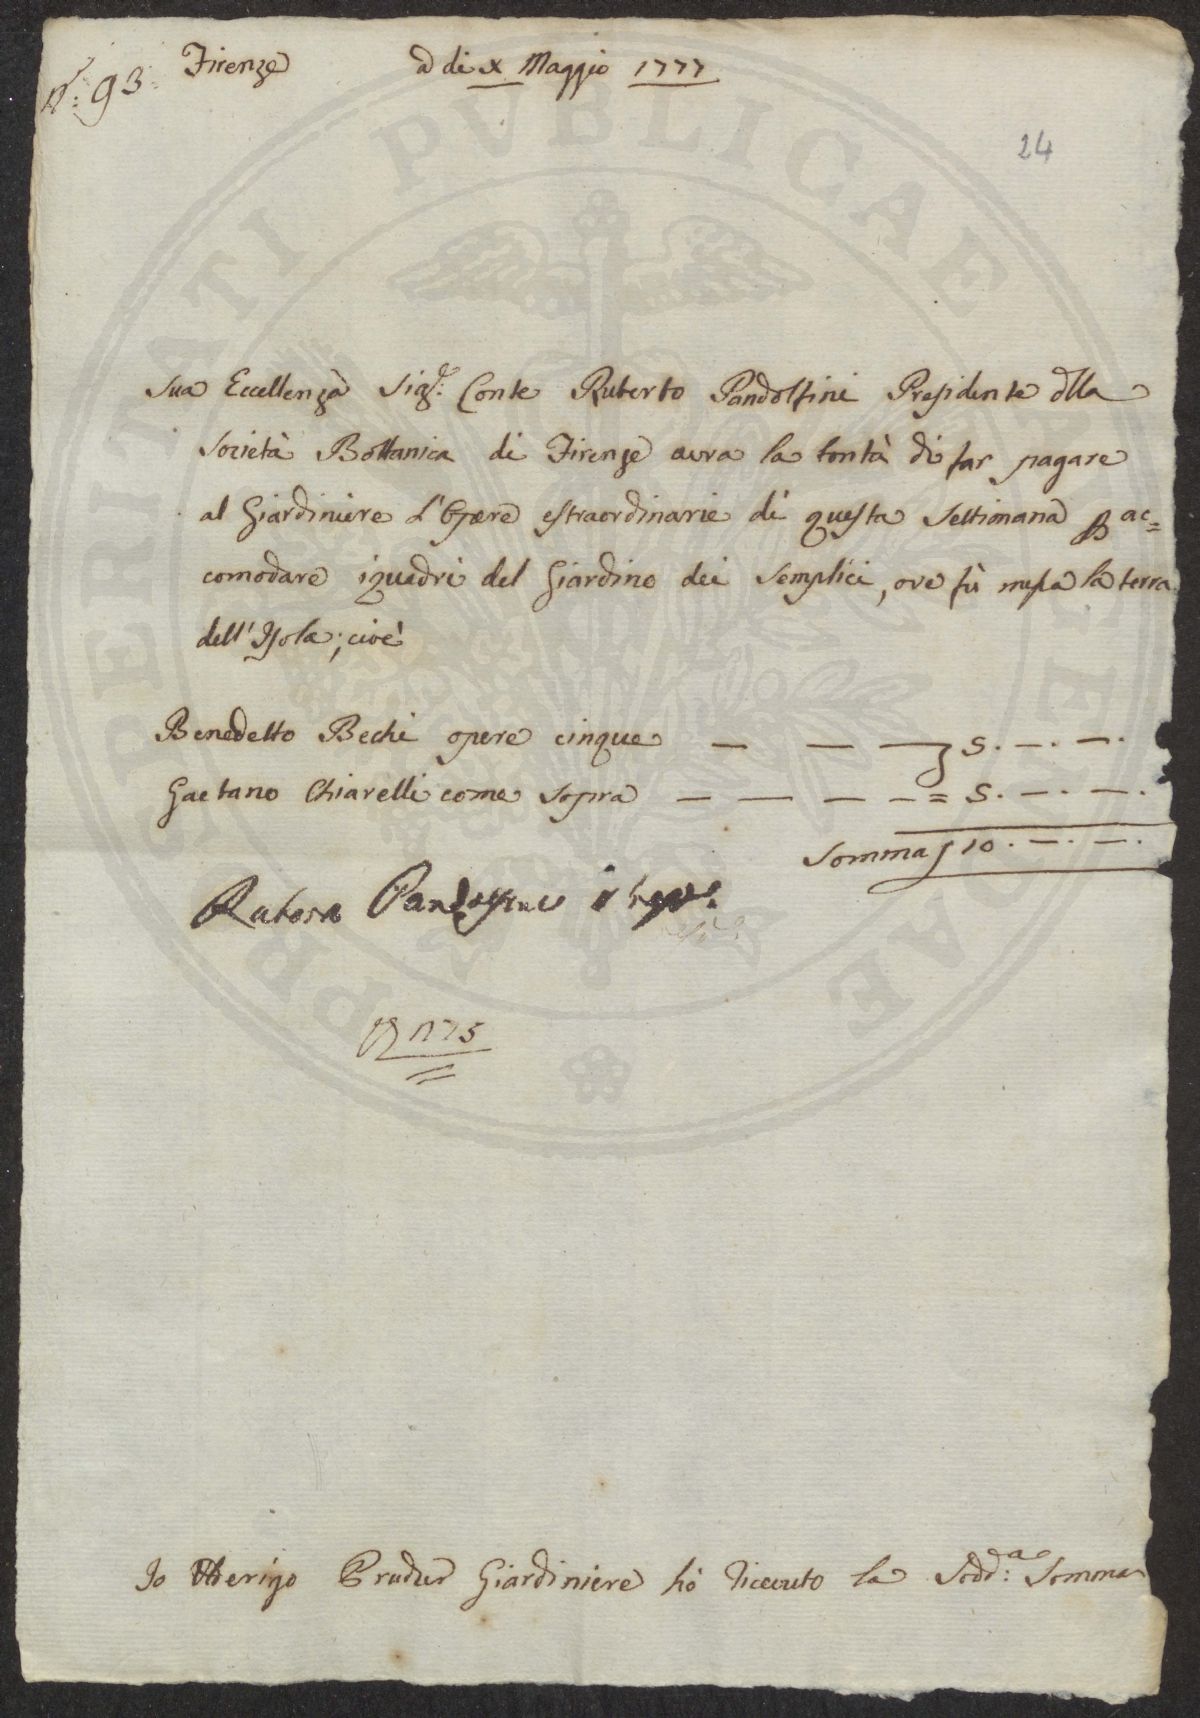 N.° 93 Firenze a di X Maggio 1777
24
Sua Eccellenza Sig.r Conte Ruberto Pandolfini Presidente dlla
Società Bottanica di Firenze avra la bontà di far pagare
al Giardiniere l'Opere estraordinarie di questa Settimana p ac=
comodare i quadri del Giardino dei Semplici, ove fù messa la terra
dell'Isola; cioè
Benedetto Bechi opere cinque — — — 5. —. —.
Gaetano Chiarelli come sopra — — — — = 5. —. —.
Somma 10. —. —.
Pandolfini
1775
Io Giardiniere hò ricevuto la Sodd.a Somma
PERPETUITATI PVBLICAE AETATE